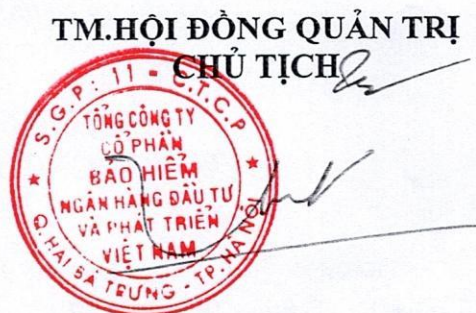 TM.HỘI ĐỒNG QUẢN TRỊ
CHỦ TỊCH
S.G.P: 11 - C.T.C.P
TỔNG CÔNG TY
CỔ PHẦN
BẢO HIỂM
NGÂN HÀNG ĐẦU TƯ
VÀ PHÁT TRIỂN
VIỆT NAM
Q.HAI BÀ TRƯNG - TP.HÀ NỘI